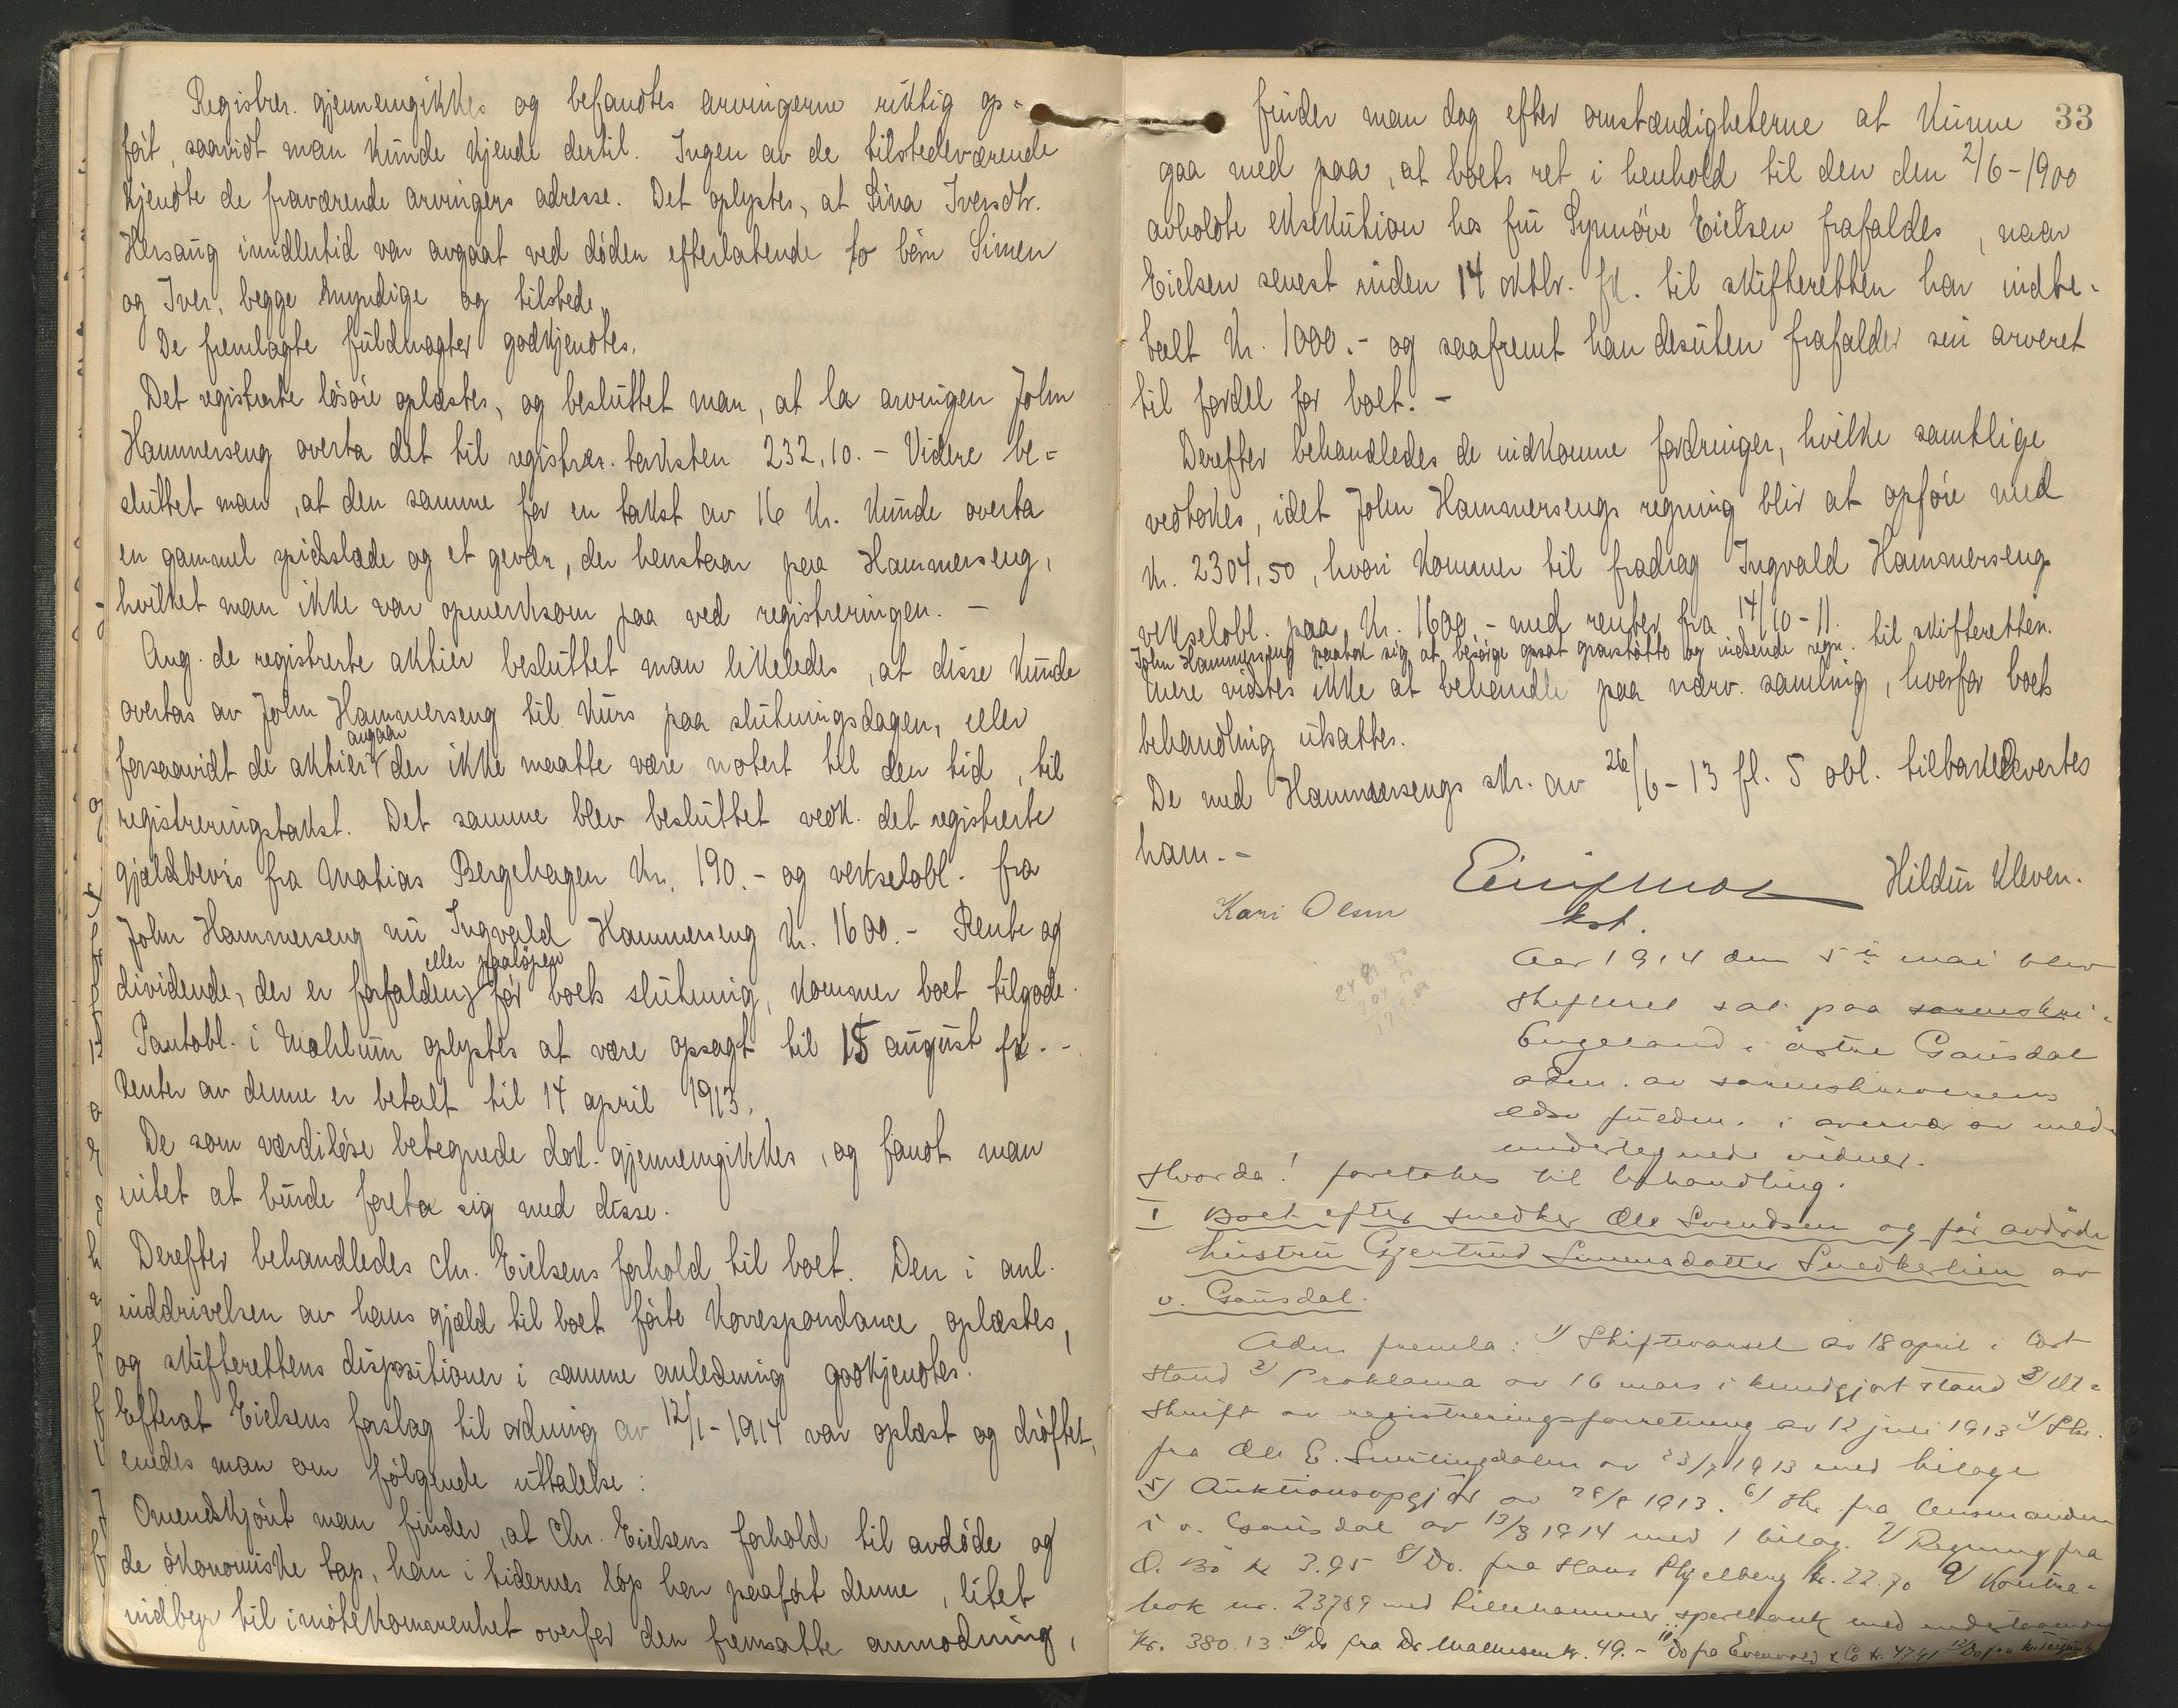 Registrer. gjennemgikkes og befandtes arvingerne riktig op-
ført, saavidt man kunde kjende dertil. Ingen av de tilstedeværende
kjendte de fraværende arvingers adresse. Det oplystes, at Sina Iversdtr.
Hersaug imidlertid var avgaat ved døden efterlatende to børn Simen
og Iver, begge myndige og tilstede.
De fremlagte fuldmagter godkjendtes.
Det registrerte løsøre oplæstes, og besluttet man, at la arvingen John
Hammerseng overta det til registrer. taksten 232,10.- Videre be-
sluttet man, at den samme for en takst av 16 Kr. kunde overta
en gammel spidsslæde og et gevær, der henstaar paa Hammerseng,
hvilket man ikke var opmerksom paa ved registreringen. -
Ang. de registrerte aktier besluttet man likeledes, at disse kunde
overtas av John Hammerseng til kurs paa slutningsdagen, eller
forsaavidt de aktier angaar der ikke maatte være notert til den tid, til
registreringstakst. Det samme blev besluttet vedk. det registrerte
gjældsbevis fra Mathias Bergehagen Kr. 190.- og vekselobl. fra
John Hammerseng nu Ingvald Hammerseng Kr. 1600.- Rente og
dividende, der er forfalden eller paaløpen før boets slutning, kommer boet tilgode.
Pantobl. i Mæhlum oplystes at være opsagt til 15 august fk. -
Renter av denne er betalt til 14 april 1913.
De som værdiløse betegnede dok. gjennemgikkes, og fandt man
intet at burde foreta sig med disse.
Derefter behandledes Chr. Eielsens forhold til boet. Den i anl.
inddrivelsen av hans gjæld til boet førte korrespondance oplæstes,
og skifterettens dispositioner i samme anledning godkjendtes.
Efterat Eielsens forslag til ordning av 12/1-1914 var oplæst og drøftet,
enedes man om følgende uttalelse:
Omendskjønt man finder, at Chr. Eielsens forhold til avdøde og
de økonomiske tap, han i tidernes løp har paaført denne, litet
indbyr til imøtekommenhet overfor den fremsatte anmodning,
33
finder man dog efter omstændigheterne at kunne
gaa med paa, at boets ret i henhold til den den 2/6-1900
avholdte eksekution hos fru Synnøve Eielsen frafaldes, naar
Eielsen senest inden 14 oktbr. fk. til skifteretten har indbe-
talt Kr. 1000.- og saafremt han desuten frafalder sin arveret
til fordel for boet. -
Derefter behandledes de indkomne fordringer, hvilke samtlige
vedtokes, idet John Hammersengs regning blir at opføre med
Kr. 2304,50, hvori kommer til fradrag Ingvald Hammerseng
vekselobl. paa Kr. 1600.- med renter fra 14/10-11.
John Hammerseng paatok sig at besørge opsat gravstøtte og indsende regn. til skifteretten.
Mere vidstes ikke at behandle paa nærv. samling, hvorfor boets
behandling utsattes.
De med Hammersengs skr. av 26/6-13 fl. 5 obl. tilbakeleverte
ham. -
Hildur Kleven.
Kari Olsen
kst.
Aar 1914 den 5te mai blev
skifteret sat paa sorenskri-
Engeland i østre Gausdal
adm. av sorenskriverens
edsv. fuldm. i overvær av med-
undertegnede vidner.
Hvorda! foretokes til behandling.
I Boet efter snedker Ole Svendsen og før avdøde
hustru Gjertrud Simensdatter Snedkerlien av
v. Gausdal.
Adm fremla: 1/ Skiftevarsel av 18 april i
stand 2/ Proklama av 16 mars i kundgjort stand 3/ Ut-
skrift av registreringsforretning av 12 juli 1913 4/ Skr.
fra Ole E. av 23/7 1913 med bilage
5/ Auktionsopgjør av 28/8 1913. 6/ Skr fra lensmanden
i v. Gausdal av 13/3 1914 med 1 bilag. 7/ Regning fra
O. Bö kr 3.95 8/ Do. fra Hans Skjelberg kr. 22.70 9/ Kontra-
bok nr. 23789 med Lillehammer sparebank med indestaaende
Kr. 380.13. 10/ Do fra Dr Mathiesen kr. 49.- 11/ Do fra Evenvold & Co kr. 47.41 12/ Do fra